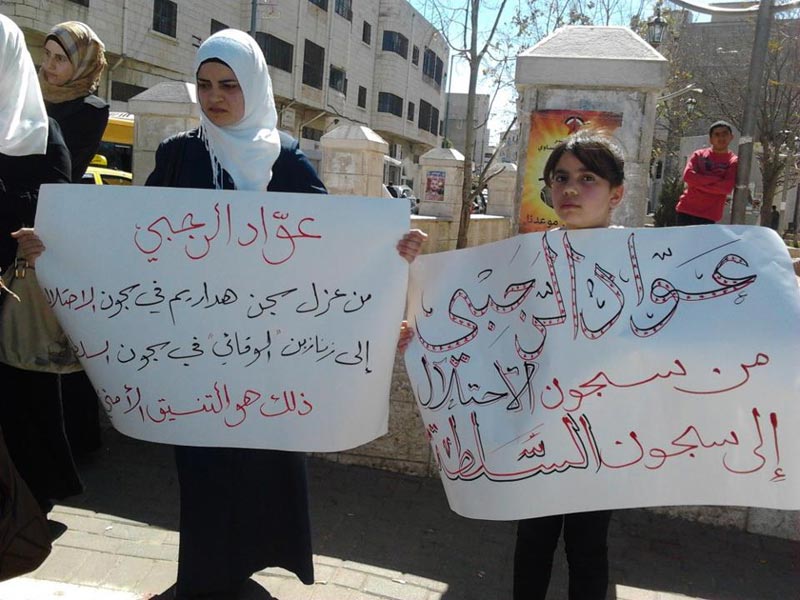 عوّاد الرجبي
من عزل سجن هداريم في سجون الاحتلال
إلى زنازين "الوقائي" في سجون السلطة
ذلك هو التنسيق الأمني
عوّاد الرّجَبي
من سجون الاحتلال
إلى سجون السّلطة
موعدنا